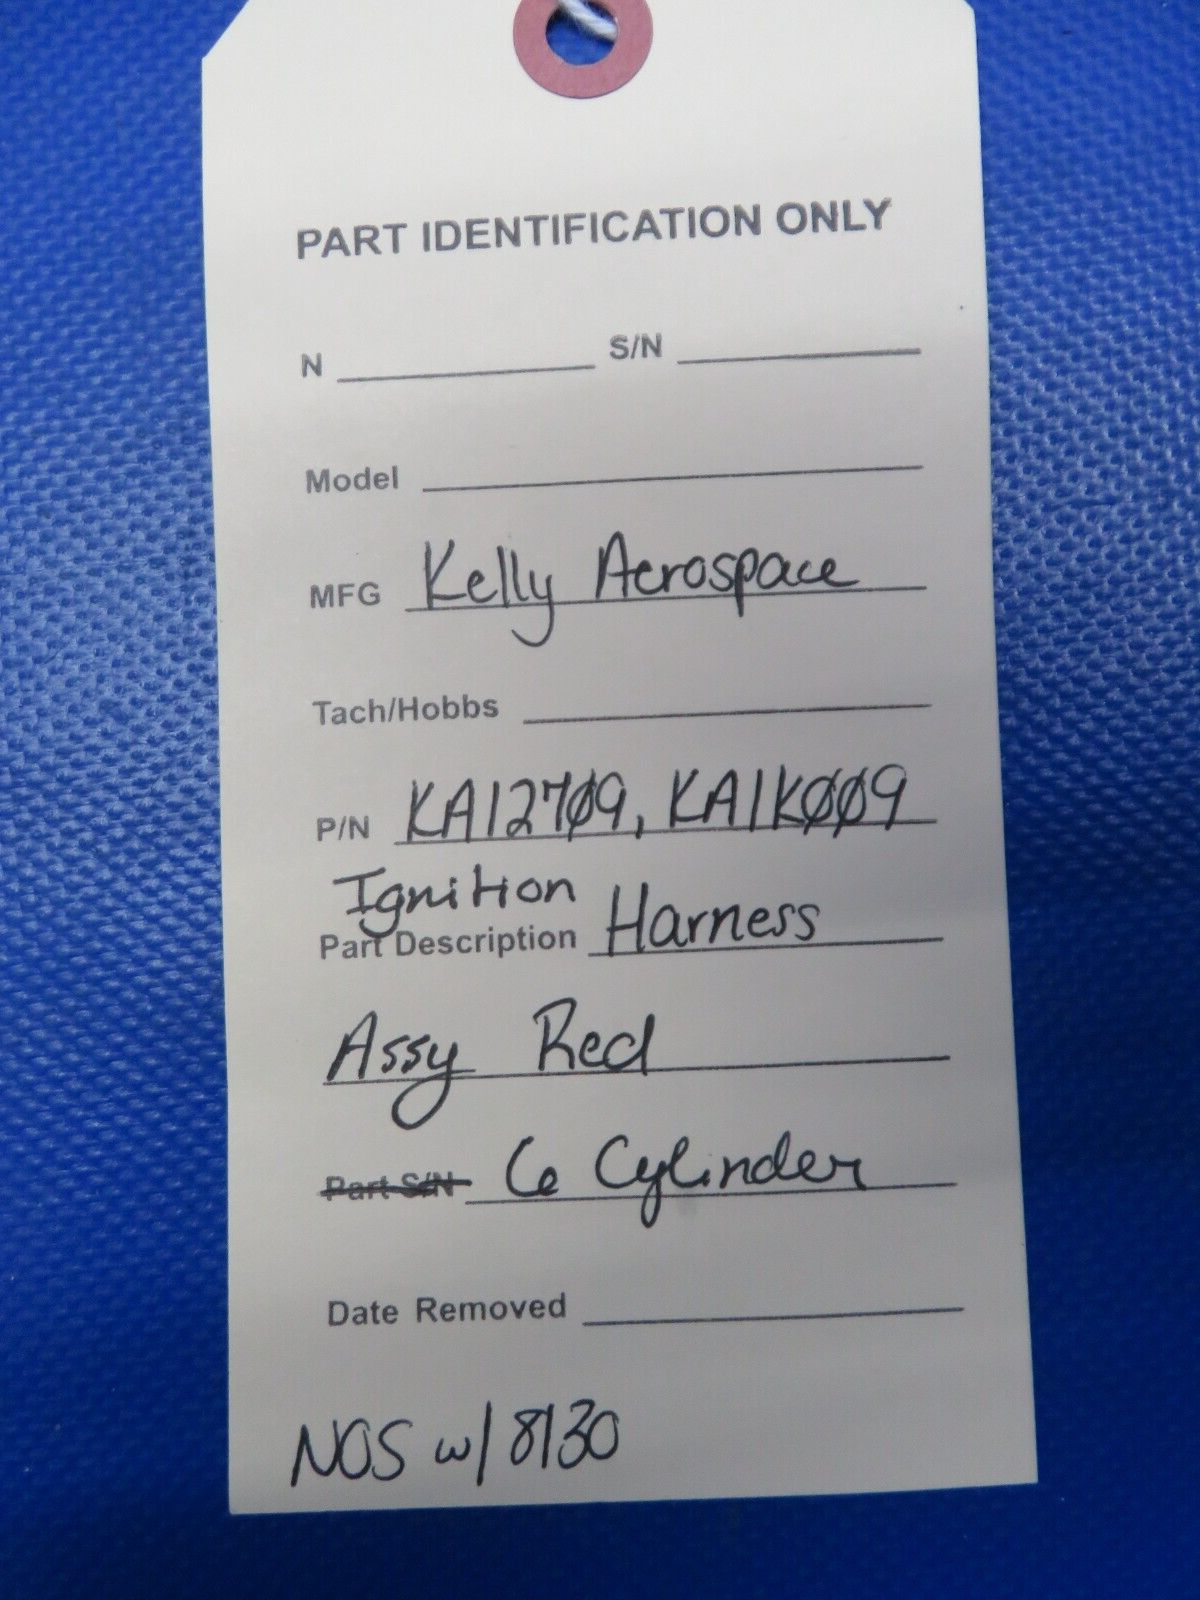 PART IDENTIFICATION ONLY
N S/N
Model
MFG Kelly Aerospace
Tach/Hobbs
P/N KA12709, KA1K009
Ignition
Part Description Harness
Assy Red
Part S/N 6 Cylinder
Date Removed
NOS w/ 8130